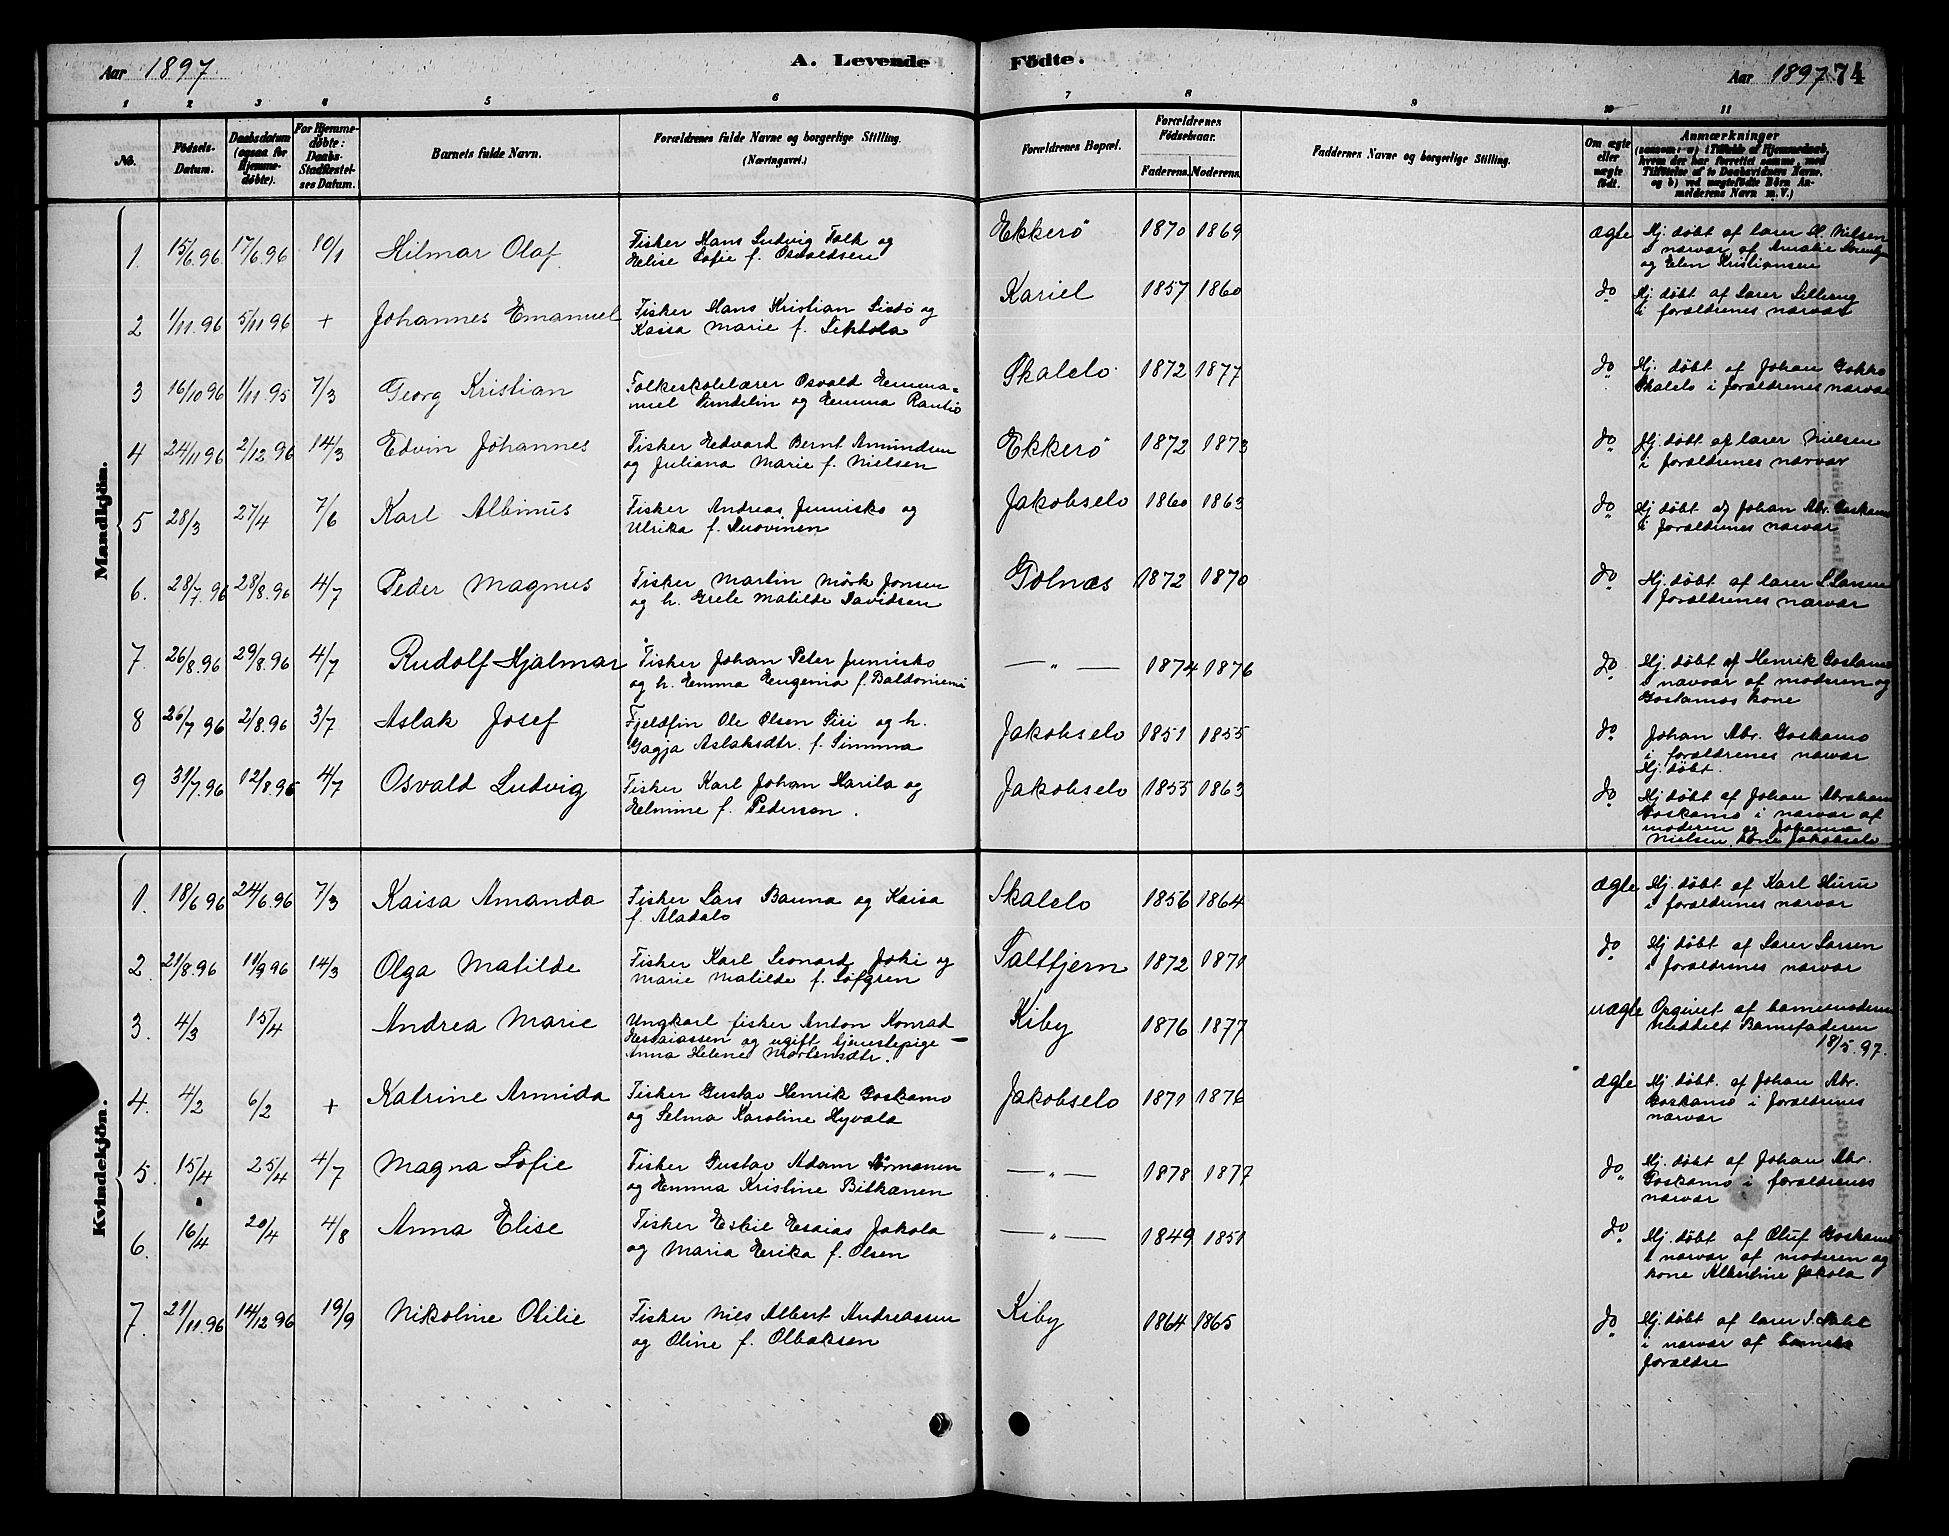 Aar 1897
A. Levende
Födte.
Aar 1897 74
1 2 3 4 5 6 7 8 9 10 11
No.
Födsels-
Datum.
Daabsdatum
(ogsaa for
Hjemme-
döbte).
For Hjemme-
döbte:
Daabs-
Stadfæstel-
ses Datum.
Barnets fulde Navn.
Forældrenes fulde Navne og borgerlige Stilling.
(Næringsvei.)
Forældrenes Bopæl.
Forældrenes
Födselsaar.
Faderens. Moderens.
Faddernes Navne og borgerlige Stilling.
Om ægte
eller
uægte
födt.
Anmærkninger
(saasom: a) i Tilfælde af Hjemmedaab,
hvem der har forrettet samme, med
Tilföielse af to Daabsvidners Navne,
og b) ved uægtefödte Börn An-
melderens Navn m. V.)
Mandkjön.
1. 15/6.96 17/6.96 10/1 Hilmar Olaf Fisker Hans Ludvig Falk og
Elise Sofie f. Osvaldsen
Ekkerö 1870 1869 ægte Hj. døbt af lærer N. Nielsen
i nærvær af Amalie
og Elen Kristiansen
2 1/11.96 5/11 96 + Johannes Emanuel Fisker Hans Kristian Sisdø og
Kaisa Marie f.
Kariel 1857 1860 do Hj. døbt af Lærer Lilleeng
i forældrenes nærvær
3 16/10 96 1/11.95 7/3 Georg Kristian Folkeskolelærer Osvald Emma=
nuel Sundelin og Emma Rautio
Skalelv 1872 1877 do Hj. døbt af Johan Gokko
Skalelv i forældrenes nærvær
4 24/11 96 2/12 96 14/3 Edvin Johannes Fisker Edvard Bernt Amundsen
og Juliana Marie f. Nielsen
Ekkerö 1872 1873 do Hj. døbt af lærer Nielsen
i forældrenes nærvær
5 28/3 27/4 7/6 Karl Albinus Fisker Andreas Junisko og
Ulrika f. Suovinen
Jakobselv 1860 1863 do Hj døbt af Johan Abr. Goskamo
i forældrenes nærvær
6. 28/7.96 28/8.96 4/7 Peder Magnus Fisker Martin Mørk Jonsen
og h. Grete Matilde Davidsen
Golnæs 1872 1870 do Hj. døbt af lærer L. Larsen
i forældrenes nærvær
7. 26/8.96 29/8.96 4/7 Rudolf Hjalmar Fisker Johan Peter Junisko
og h. Emma Eugenia f. Baldoniemi
— " — 1874 1876 do Hj. døbt af Henrik Goskamo
i nævær af moderen og
Goskamos kone
8 26/7 96 2/8.96 3/7 Aslak Josef Fjeldfin Ole Olsen Siri og h.
Gagja Aslaksdtr. f. Simma
Jakobselv 1851 1855 do Johan Abr. Goskamo
i forældrenes nærvær
Hj. døbt.
9 31/7.96 12/8.96 4/7 Osvald Ludvig Fisker Karl Johan Harila og
Elmine f. Pederson.
Jakobselv 1855 1863 do Hj. døbt af Johan Abraham
Goskamo i nærvær af
moderen og Johanna
Nielsen, kone Jakobselv
Kvindekjön.
1. 18/6 96 24/6.96 7/3 Kaisa Amanda Fisker Lars Bauna og Kaisa
f. Aladalo
Skalelv 1856 1864 ægte Hj. døbt af Karl Huru
i forældrenes nærvær
2. 21/8.96 11/9 96 14/3 Olga Matilde Fisker Karl Leonard Joki og
Marie Matilde f. Løfgren
Saltfjern 1872 1871 do Hj døbt af Lærer Larsen
i forældrenes nærvær
3. 4/3 15/4 Andrea Marie Ungkarl fisker Anton Konrad
Esaiassen og ugift tjenestepige —
Anna Helene Mortensdtr.
Kiby 1876 1877 uægte Opgivet af barnemoderen
Meddelt Barnefaderen
18/5.97.
4. 4/2 6/2 + Katrine Armida Fisker Gustav Henrik Goskamo
og Selma Karoline Hyvala
Jakobselv 1871 1876 ægte Hj. døbt. af Johan Abr.
Goskamo i forældrenes
nærvær
5. 15/4 25/4 4/7 Magna Sofie Fisker Gustav Adam Sørmanen
og Emma Kristine Bitkanen
— " — 1878 1877 do Hj. døbt af Johan Abr.
Goskamo i forældrenes
nærvær
6. 16/4 20/4 4/8 Anna Elise Fisker Eskil Esaias Jakola
og Maria Erika f. Olsen
— " — 1849 1851 do Hj. døbt af Oluf Goskamo
i nærvær af moderen og
kone Albertine Jakola
7. 21/11.96 14/12 96 19/9 Nikoline Otilie Fisker Nils Albert Andreassen
og Oline f. Olbaksen
Kiby 1864 1865 do Hj. døbt af lærer
i nærvær af barnets
forældre